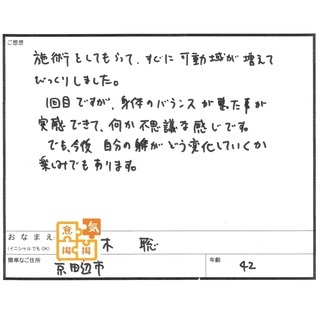 ご感想
施術をしてもらって、すぐに可動域が増えて
びっくりしました。
1回目ですが、身体のバランスが悪た事が
実感できて、何か不思議な感じです。
でも今後 自分の躰がどう変化していくか
楽しみでもあります。
おなまえ
(イニシャルでもOK)
木 聡
簡単なご住所
京田辺市
年齢
42